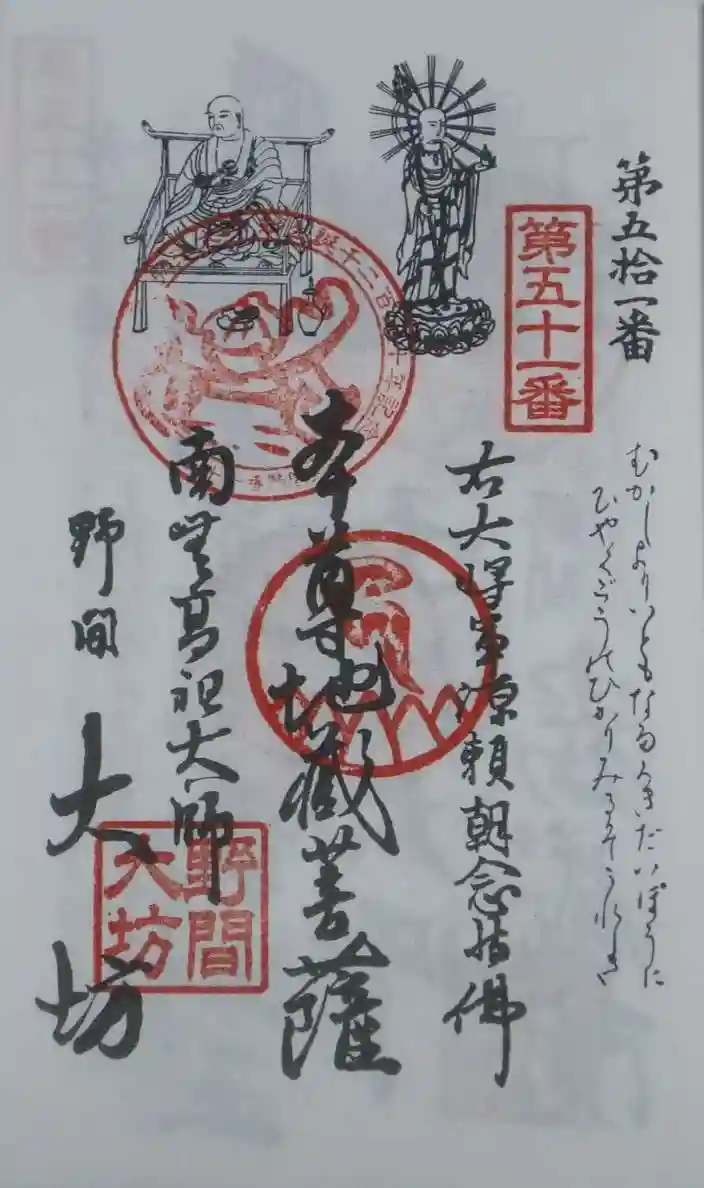 第五拾一番
第五十一番
むかしよりいともなるくきだいぼうに
ひやくごうのひかりみるぞうれしき
右大将軍源頼朝念持佛
本尊地蔵菩薩
南無高祖大師
野間
大坊
野間
大坊